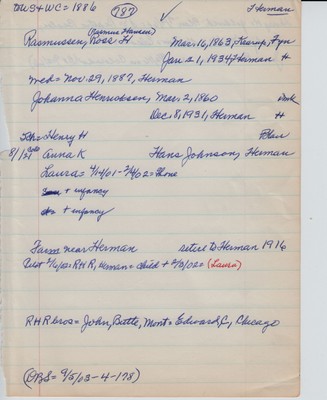 to US + WC = 1886 (787) Herman
(Rasmus Hansen)
Rasmussen, Ross H Mar. 16, 1863, Kaarup, Fyn
Jan. 21, 1934 Herman H
Wed = Nov. 29, 1887, Herman
Johanna Henrikson, Mar. 2, 1860 Denk
Dec. 8, 1931, Herman H
Ch = Henry H Blair
8/1 Anna K Hans Johnson, Herman
Laura = 4/14/01 - 2/4/02 = Stone
+ infancy
+ infancy
Farm near Herman retire to Herman 1916
Pilot 2/6/02 = R H R, Herman = child + 2/4/02 = (Laura)
R H R bros = John, Butte, Mont = Edward C, Chicago
(OBS = 9/5/03 - 4 - 178)